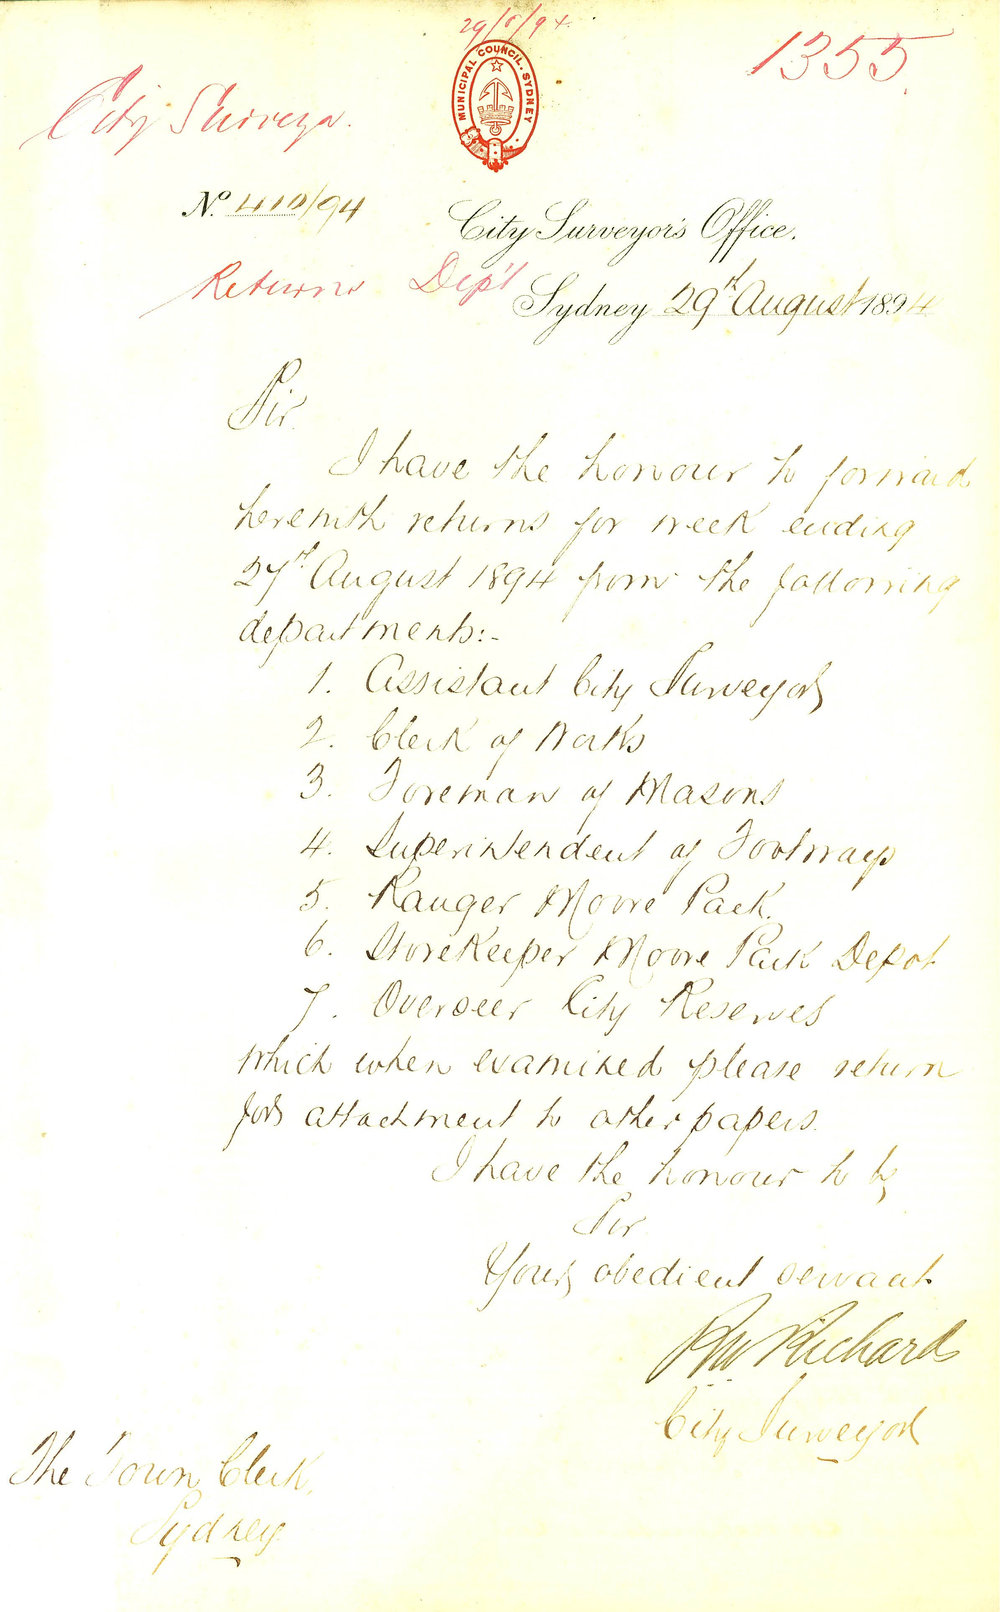 29/8/94
1355
MUNICIPAL COUNCIL. SYDNEY
City Surveyor.
No. 410/94
City Surveyor's Office.
Returns Dep't
Sydney 29th August 1894
Sir
I have the honour to forward
herewith returns for week ending
27th August 1894 from the following
departments:-
1. Assistant City Surveyor
2. Clerk of Works
3. Foreman of Masons
4. Superintendent of Footways
5. Ranger Moore Park.
6. Storekeeper Moore Park Depot
7. Overseer City Reserves
which when examined please return
for attachment to other papers.
I have the honour to be
Sir
Your obedient servant
RW Richards
City Surveyor
The Town Clerk.
Sydney